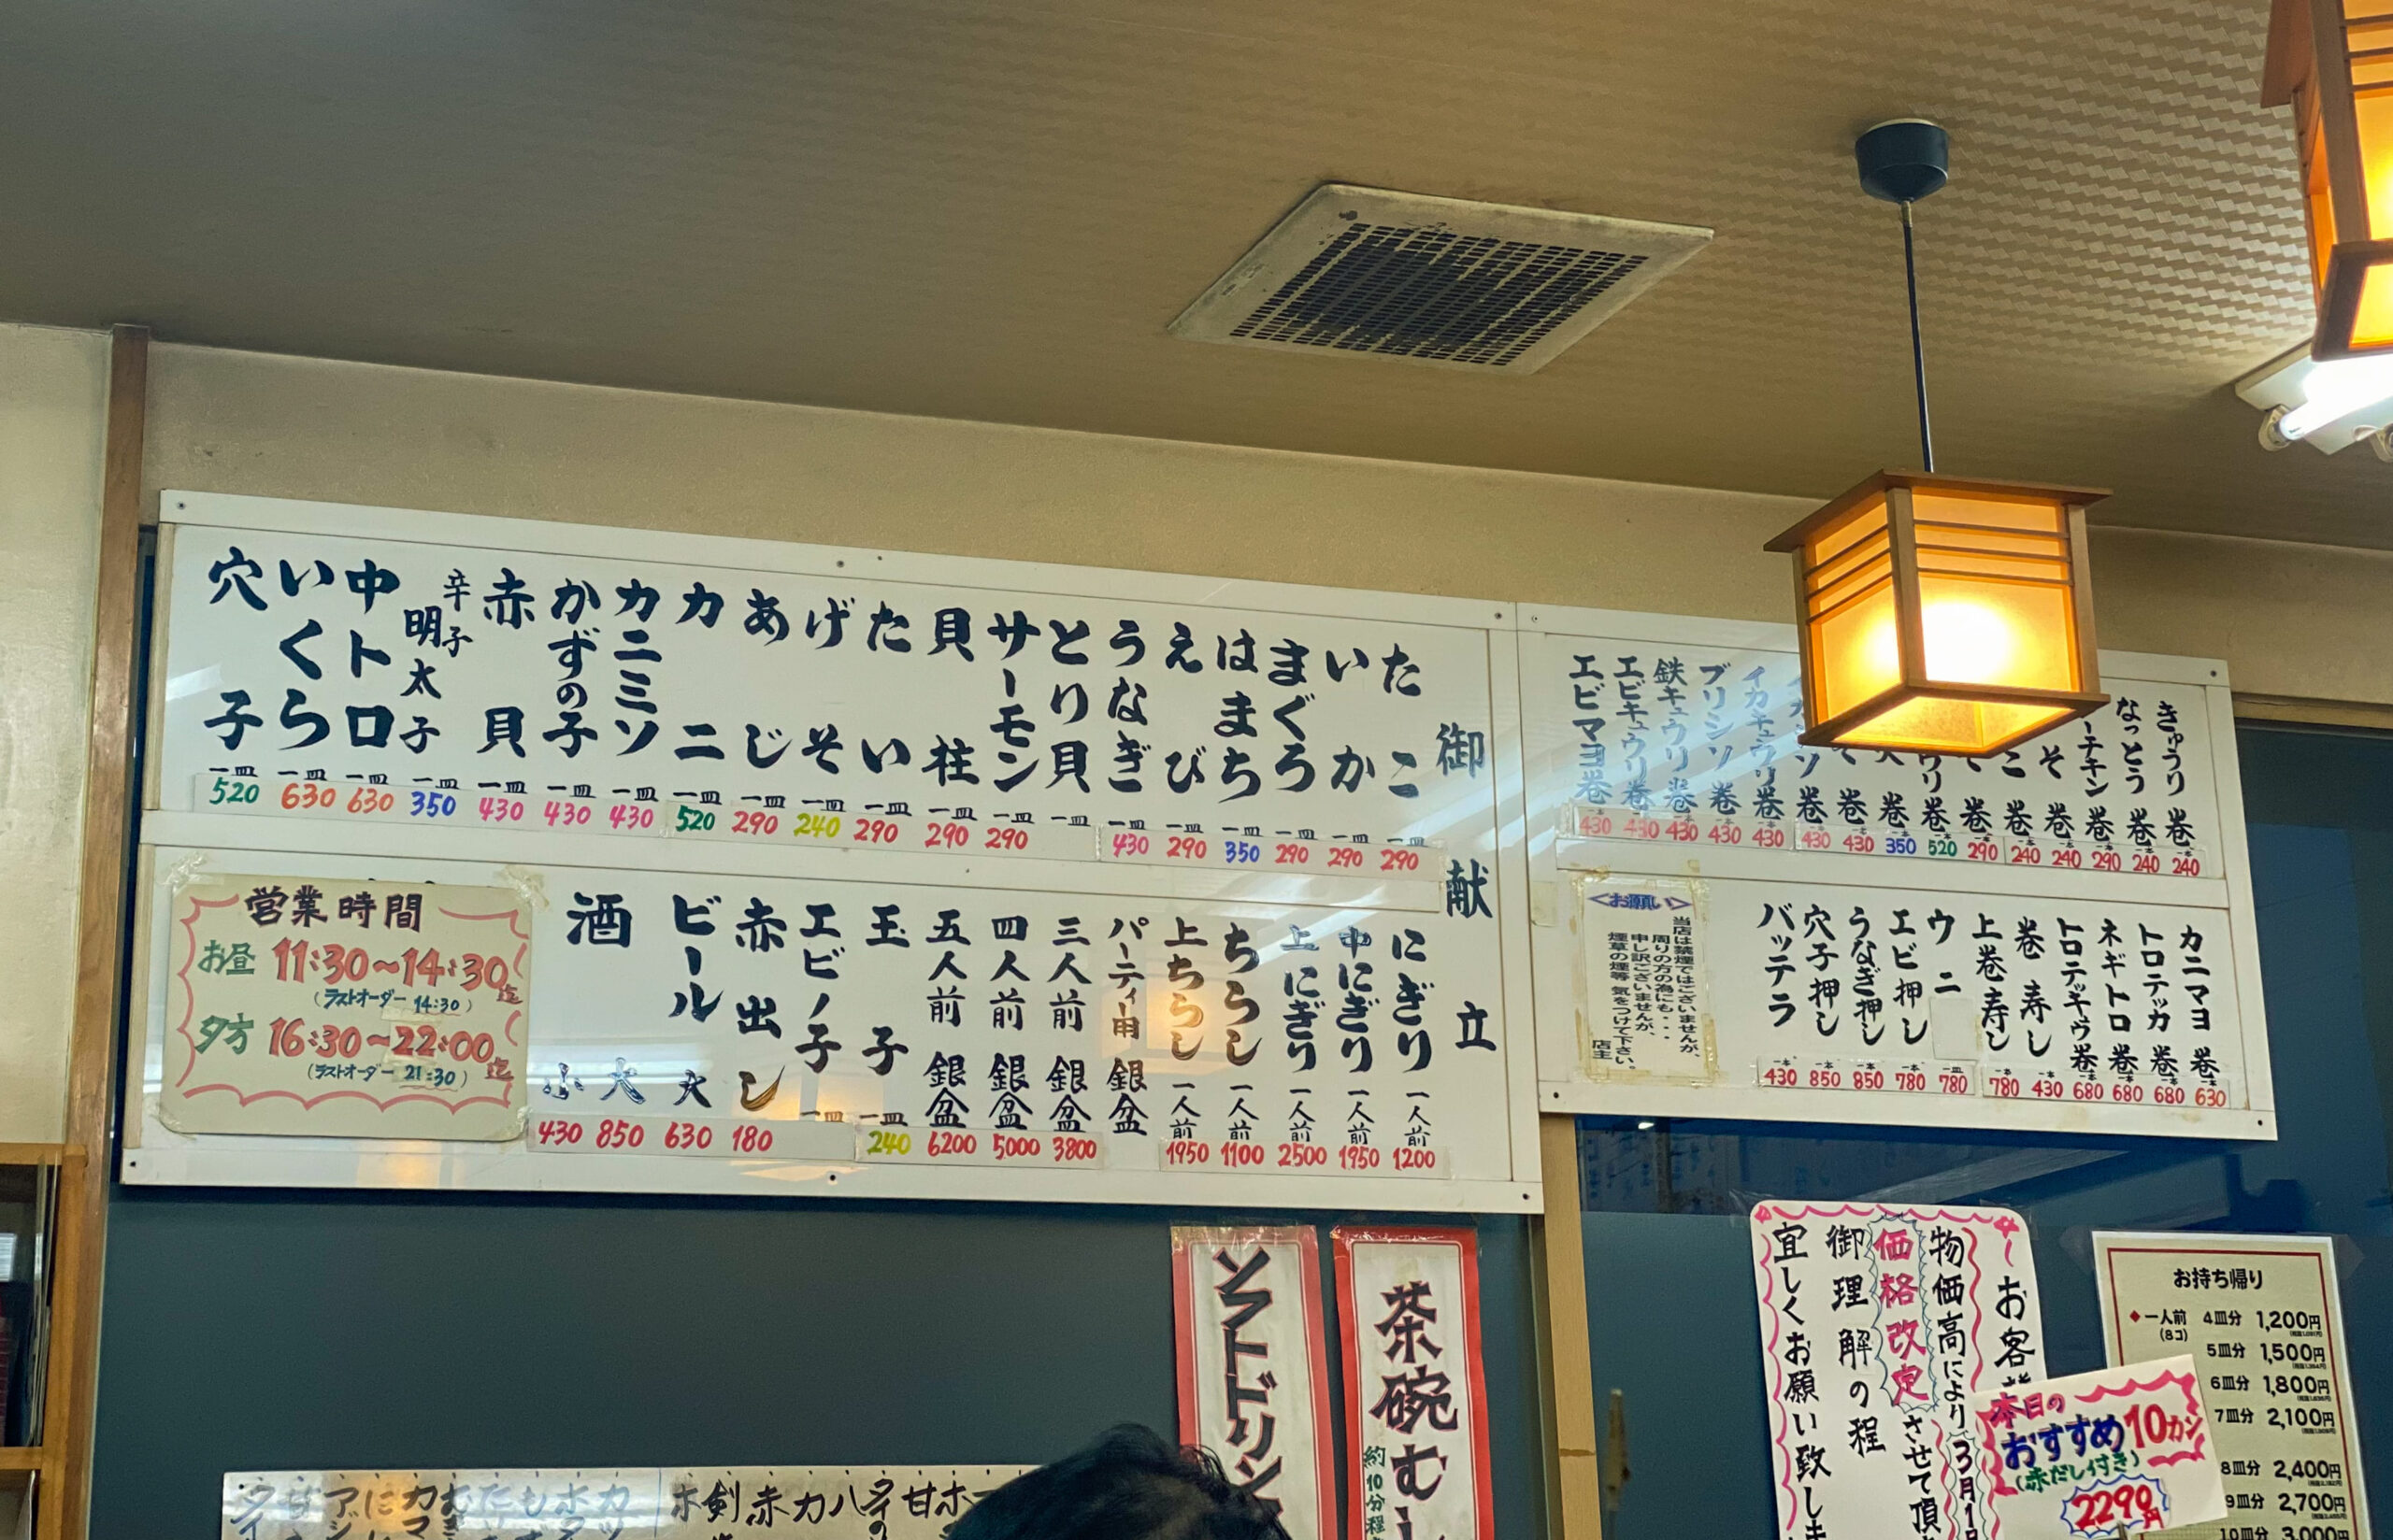 御献立
たこ 一皿 290
いか 一皿 290
まぐろ 一皿 290
はまち 一皿 350
えび 一皿 290
うなぎ 一皿 430
とり貝 一皿
サーモン 一皿 290
貝柱 一皿 290
たい 一皿 290
げそ 一皿 240
あじ 一皿 290
カニ 一皿 520
カニミソ 一皿 430
かずの子 一皿 430
赤貝 一皿 430
辛子明太子 一皿 350
中トロ 一皿 630
いくら 一皿 630
穴子 一皿 520
にぎり 一人前 1200
中にぎり 一人前 1950
上にぎり 一人前 2500
ちらし 一人前 1100
上ちらし 一人前 1950
パーティー用 銀盆
三人前 銀盆 3800
四人前 銀盆 5000
五人前 銀盆 6200
玉子 一皿 240
エビノ子 一皿
赤出し 180
ビール 大 630
酒 大 850
小 430
営業時間
お昼 11:30~14:30迄
(ラストオーダー 14:30)
夕方 16:30~22:00迄
(ラストオーダー 21:30)
きゅうり巻 一本 240
なっとう巻 一本 240
巻 一本 290
巻 一本 240
巻 一本 240
巻 一本 290
巻 一本 520
巻 一本 350
巻 一本 430
巻 一本 430
イカキュウリ巻 一本 430
ブリシソ巻 一本 430
鉄キュウリ巻 一本 430
エビキュウリ巻 一本 430
エビマヨ巻 一本 430
カニマヨ巻 一本 630
トロテッカ巻 一本 680
ネギトロ巻 一本 680
トロテッキュウ巻 一本 680
巻寿し 一本 430
上巻寿し 一本 780
ウニ 一皿 780
エビ押し 一本 780
うなぎ押し 一本 850
穴子押し 一本 850
バッテラ 一本 430
<お願い>
当店は禁煙ではございませんが、
周りの方の為にも・・・
申し訳ございませんが、
煙草の煙等 気をつけて下さい。
店主
茶碗むし
約10分程
ソフトドリン
お客様
物価高により3月1日
価格改定させて頂
御理解の程
宜しくお願い致しま
本日の
おすすめ10カン
(赤だし付き)
2290円
お持ち帰り
◆一人前 4皿分 1,200円
(8コ)
5皿分 1,500円
6皿分 1,800円
7皿分 2,100円
8皿分 2,400円
9皿分 2,700円
10皿分 3,000円